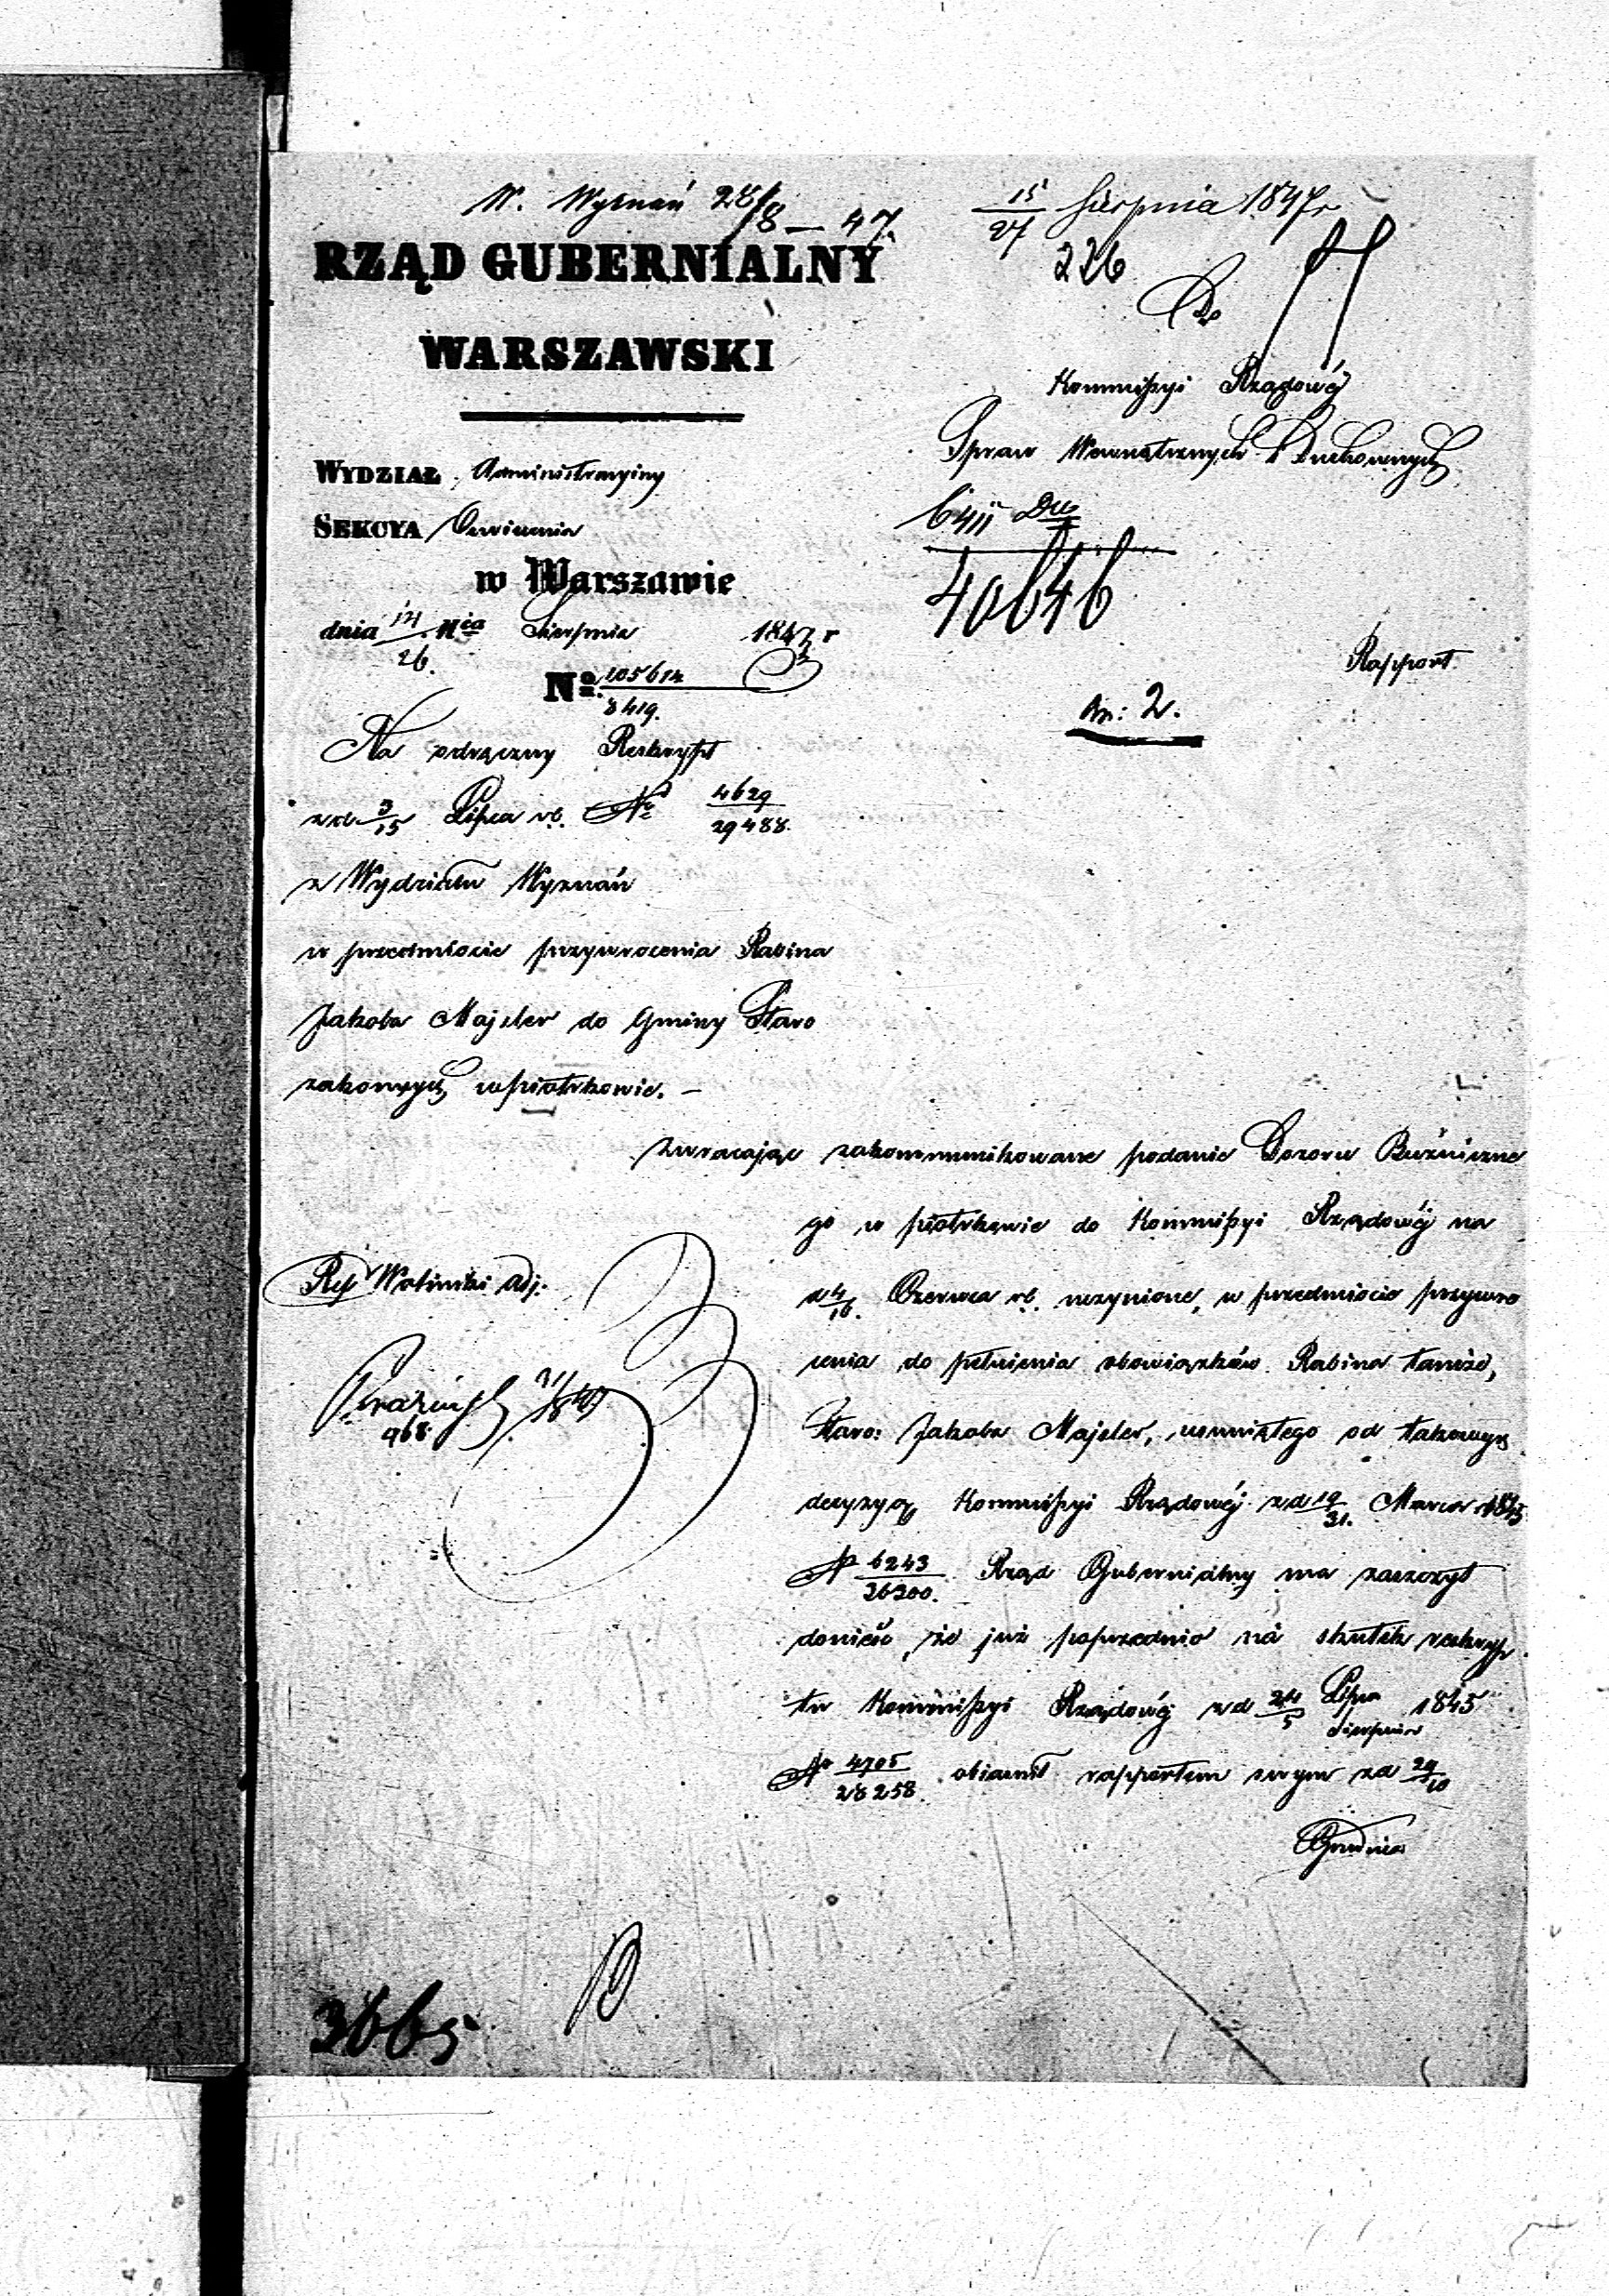 W. Wyznań 28/8 — 47.
15/27 Sierpnia 1847 r
226
RZĄD GUBERNIALNY
WARSZAWSKI
Do
Kommissyi Rządowéj
Spraw Wewnętrznych i Duchownych
WYDZIAŁ Administracyiny
SEKCYA
40646
w Warszawie
dnia 14/26 Nia Sierpnia 1847 r
No. 105614/8419.
Rapport
an: 2.
Na odręczny Reskrypt
z d 3/15 Lipca rb. No 4629/29488.
z Wydziału Wyznań
w przedmiocie przywrocenia Rabina
Jakoba Majzler do Gminy Staro
zakonnych w piotrkowie. —
Zwracając zakommunikowane podanie Dozoru Bużniczne
go w piotrkowie do Kommissyi Rządowéj na
d 4/16. Czerwca rb. uczynione, w przedmiocie przywro
cenia do pełnienia obowiązków Rabina tamże,
Staro: Jakoba Majzler, usuniętego od takowych
decyzyą Kommissyi Rządowéj z d 19/31. Marca 1845
No 6243/26200. Rząd Gubernialny ma zaszczyt
donieść, że już poprzednio na skutek reskryp
tu Kommissyi Rządowéj z d 24/5 Lipca/Sierpnia 1845
No 4705/28258. obiaśnił rapportem swym z d 29/10
Grudnia
Ref Woliński Adj:
968
3665